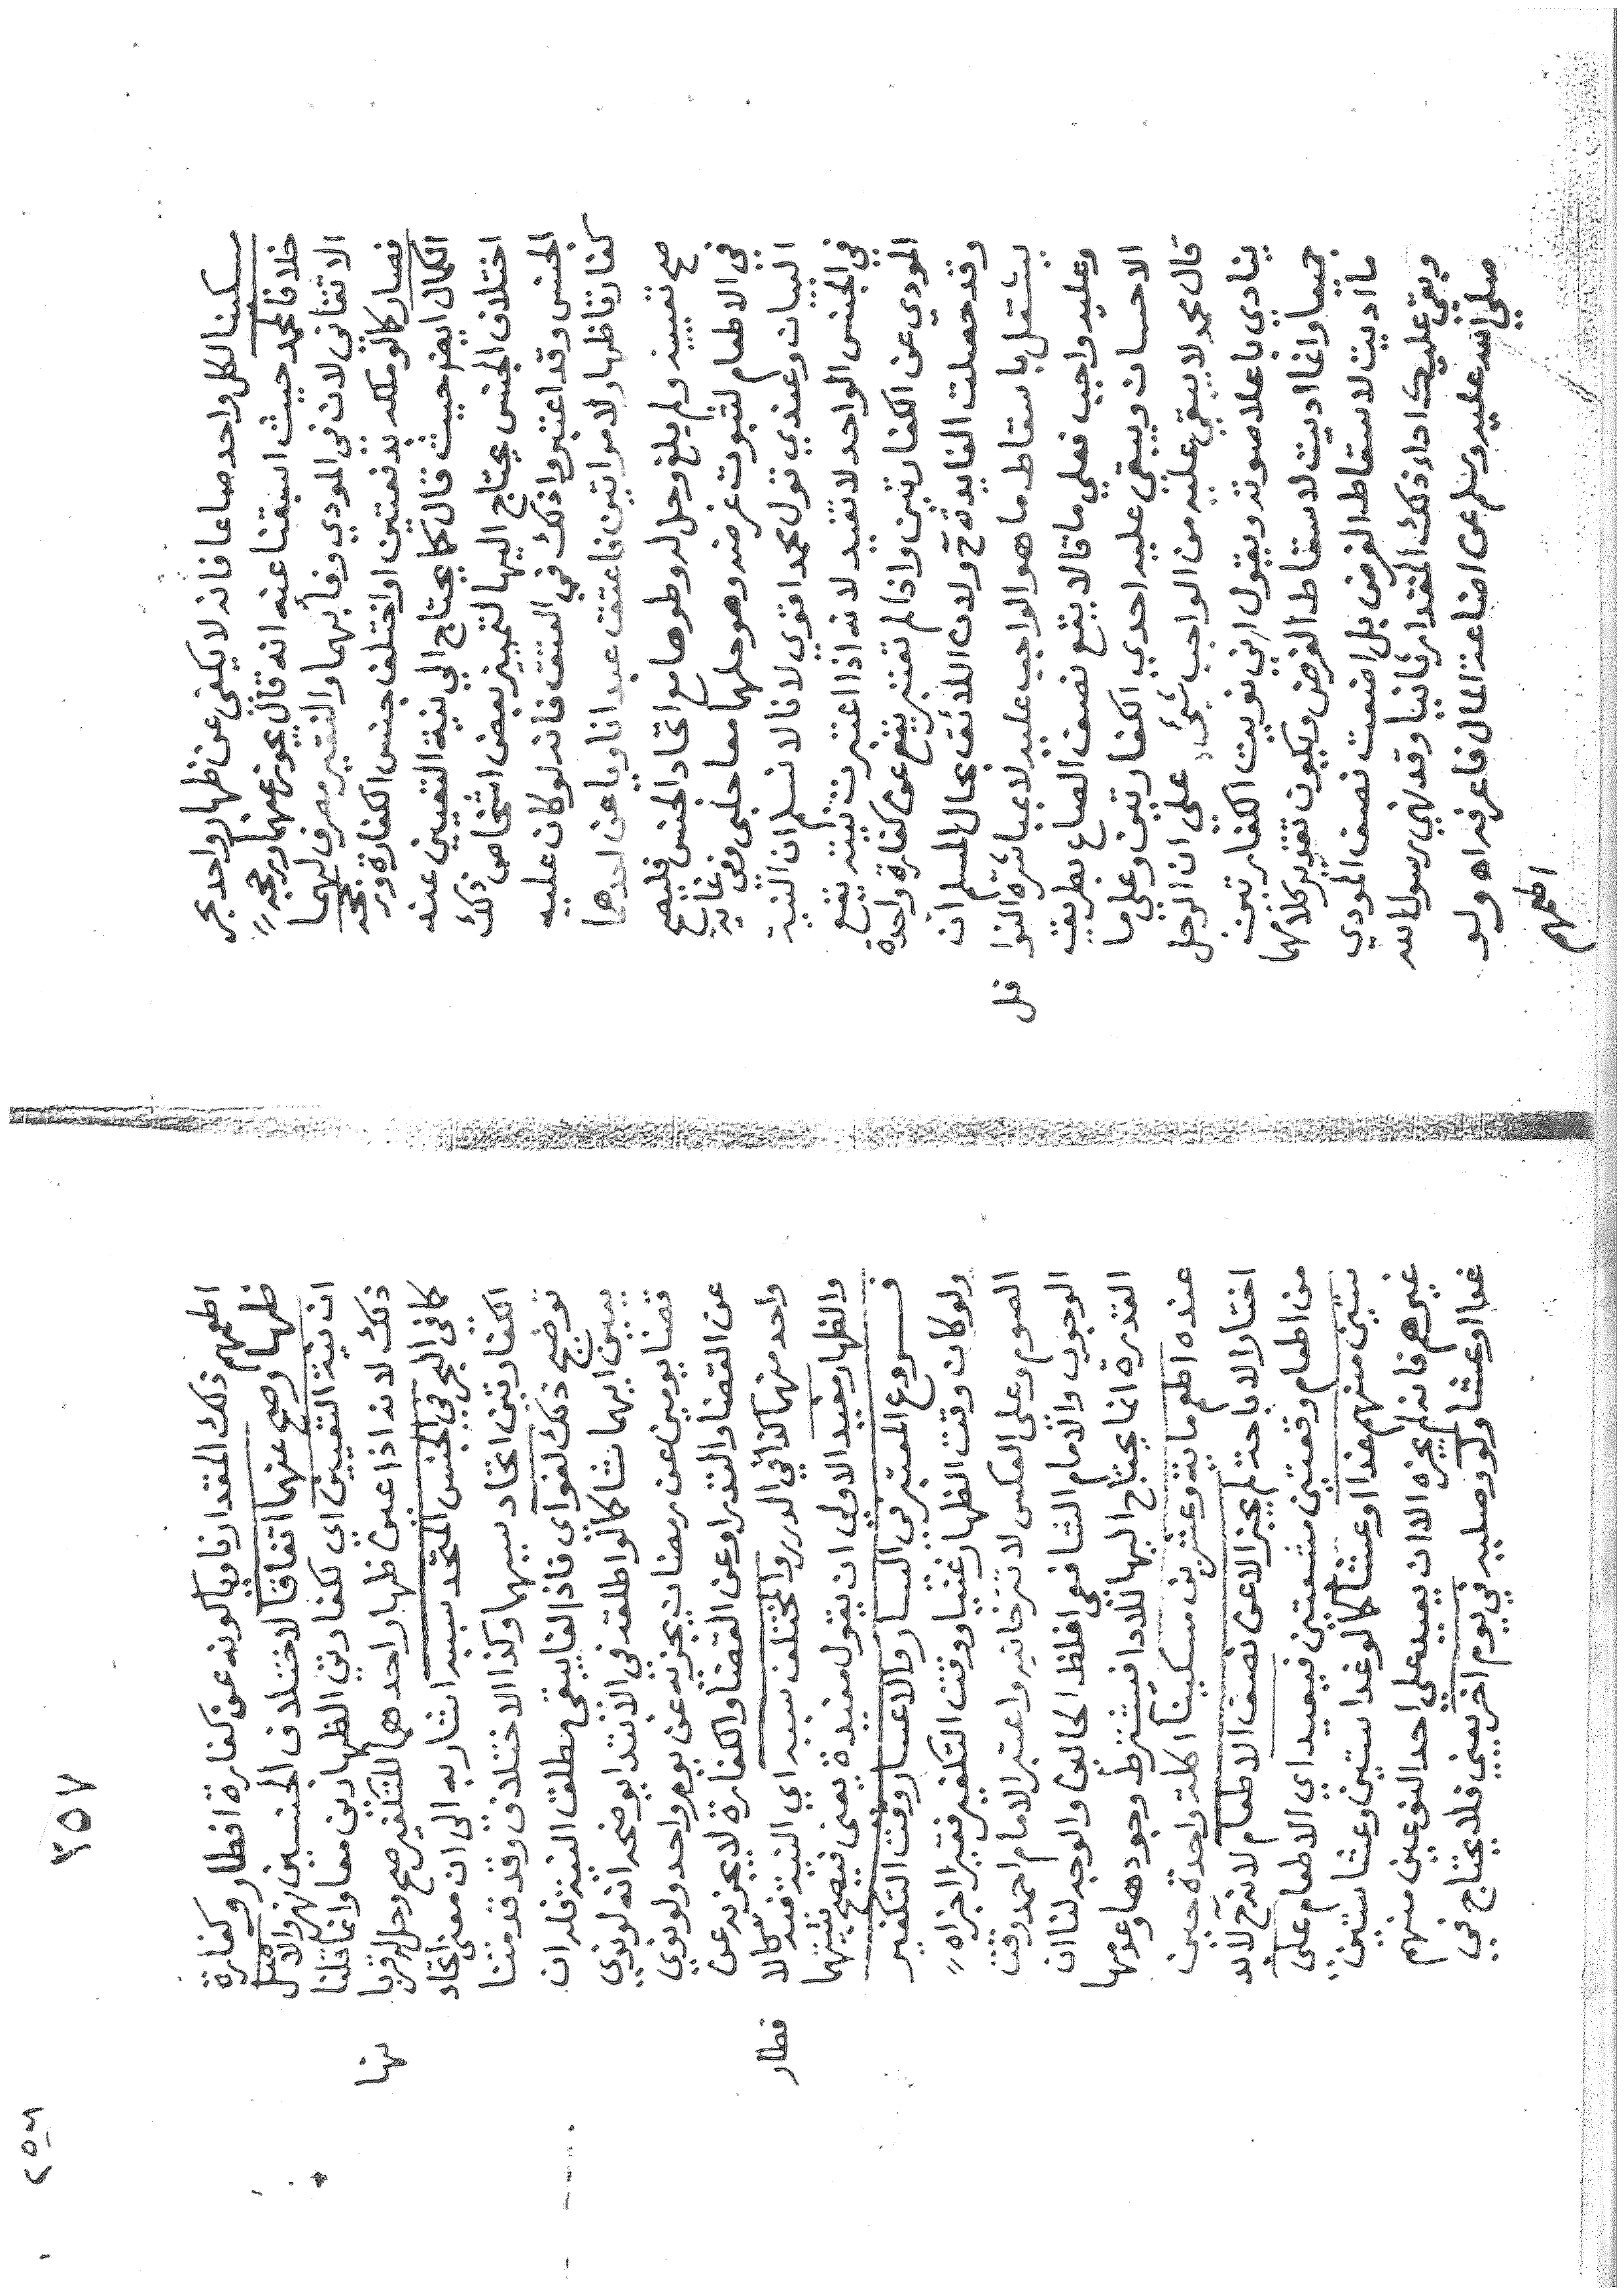 مسكينا لكل واحد صاعا فانه لا يكفى عن ظهار واحد بجر
خلافا لمحمد حيث اسبقنا عنه انه قال يجوز عنهما ورجحه
الاتقانى لان في المودي وفأ بهما والفقير مصرف لهما
فصار كالو ملكه بدفعتين او اختلف جنس الكفارة ور بجحه
الكمال ايضر حيث قال كما يحتاج الي نية التعيين عند
اختلاف الجنس يحتاج اليها لتمييز بعض اشخاص ذلك
الجنس وقد اعتبروا ذلك في العتق فانه لوكان عليه
كفارتا ظهار لامراتين فاعتق عبدا ناويا عن احدهما
صح تعيينه ولم يلغ وحل له وطوها مع اتحاد الجنس فليصح
في الاطعام لثبوت غرضه وهو حلهما معا حلبى وفي غاية
البيان وعندي قول محمد اقوي لانا لا نسلم ان النية
في الجنس الواحد لا تفيد لانه اذا اعتبرت نيته يقع
المودي عن الكفارتين واذا لم تعتبر يقع عن كفارة واحدة
وقد حصلت الفايدة ح ولان اللائق بحال المسلم ان
يشتغل باسقاط ما هو الواجب عليه لا بمباشرة النوا فل
وعليه واجب فعلي ما قالا يقع نصف الصاع بطريق
الاحسان ويبقي عليه احدي الكفارتين وعلي ما
قال محمد لا يبقي عليه من الواجب شئ علي ان الرجل
ينادي باعلا صوته ويقول اني نويت الكفارتين
جميعا وانما اديت لاسقاط الفرض ويكون تقدير كلامهما
ما اديت لاسقاط الفرض بل اضعت نصف المودي
وبقي عليك اداء ذلك المقدار ثانيا وقد نهي رسول الله
صلي الله عليه وسلم عن اضاعة المال فاعرفه اه ولو
اطعمهم
٢٥٧
٢٥٦
اطعمهم ذلك المقدار ناويا كونه عن كفارة افطار وكفارة
ظهار صح عنهما اتفاقا لاختلاف الجنسين نهر والاصل
ان نية التعيين اي لكفارتي الظهارين معا وانما قلنا
ذلك لانه اذا عين ظهار احدهما للتكفير صح وحل له قربا نها
كافي البحر في الجنس المتحد سببه اشار به الى ان معنى اتحاد
الكفارتين اتحاد سببهما وكذا الاختلاف وقد قدمنا
توضيح ذلك لغو اي فاذا لغا يبقى مطلق النية فله ان
يعين ايهما شا كالو اطلقه في الابتدا يوضحه انه لو نوي
قضا يومين عن رمضان يجزيه عن يوم واحد ولو نوي
عن القضا والنذر او عن القضا والكفارة لا يجزيه عن
واحد منهما كذا في الدرر والمختلف سببه اي النية فيه كالا فطار
والظهار مفيد الاولي ان يقول مفيدة يعنى فيصح نيتهما
فـــروع المعتبر في اليسار والاعسار وقت التكفير
ولو كان وقت الظهار غنيا ووقت التكفير فقيرا اجزاه
الصوم وعلى العكس لا تترخانيه واعتبر الامام احمد وقت
الوجوب والامام الشافعي اغلظ الحالين والوجه لنا ان
القدرة انما يحتاج اليها للاداء فيشترط وجودها وعدمها
عنده اطعم ماية وعشرين مسكينا اكلة واحدة حين
اختار الاباحة لم يجز الا عن نصف الاطعام لانه ح لابد
من اطعام وقعتين مشبعتين فيعيد اي الاطعام على
ستين منهم غدا او عشا كالو غدا ستين وعشا ستين
غيرهم فانه لم يجزه الا ان يعيد على احد النوعين منهم
غدا او عشا ولو وصليه في يوم اخر يعني فلا يحتاج في